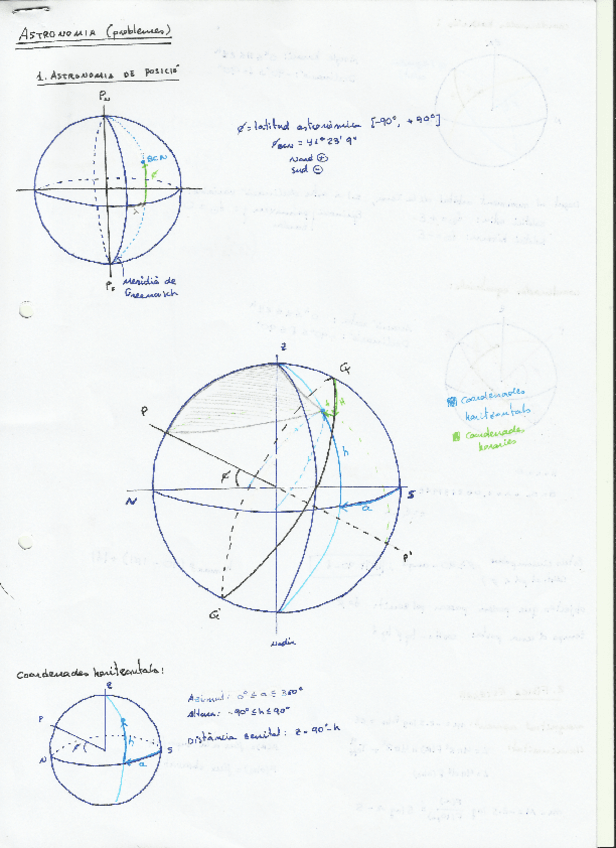 ASTRONOMIA (problemes)
1. ASTRONOMIA DE POSICIÓ
PN
BCN
φ
λ
Ps
Meridià de
Greenwich
φ = latitud astronòmica [-90°, +90°]
φBCN = 41° 23' 9"
Nord +
Sud -
Z
Q
P
φ
h
N
S
a
P'
Q'
Nadir
Coordenades
horitzontals
Coordenades
horàries
Coordenades horitzontals:
Z
P
φ
h
N
S
a
Azimut: 0° ≤ a ≤ 360°
Altura: -90° ≤ h ≤ 90°
Distància zenital: z = 90° - h